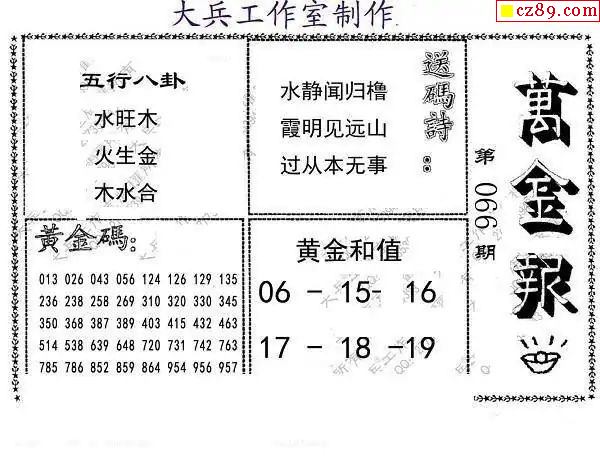 大兵工作室制作
cz89.com
萬金報
第 066 期
五行八卦
水旺木
火生金
木水合
送碼詩：
水静闻归橹
霞明见远山
过从本无事
黃金碼：
013 026 043 056 124 126 129 135
236 238 258 269 310 320 330 345
350 368 387 389 403 415 432 463
514 538 639 648 720 731 742 763
785 786 852 859 864 954 956 957
黄金和值
06 - 15- 16
17 - 18 -19